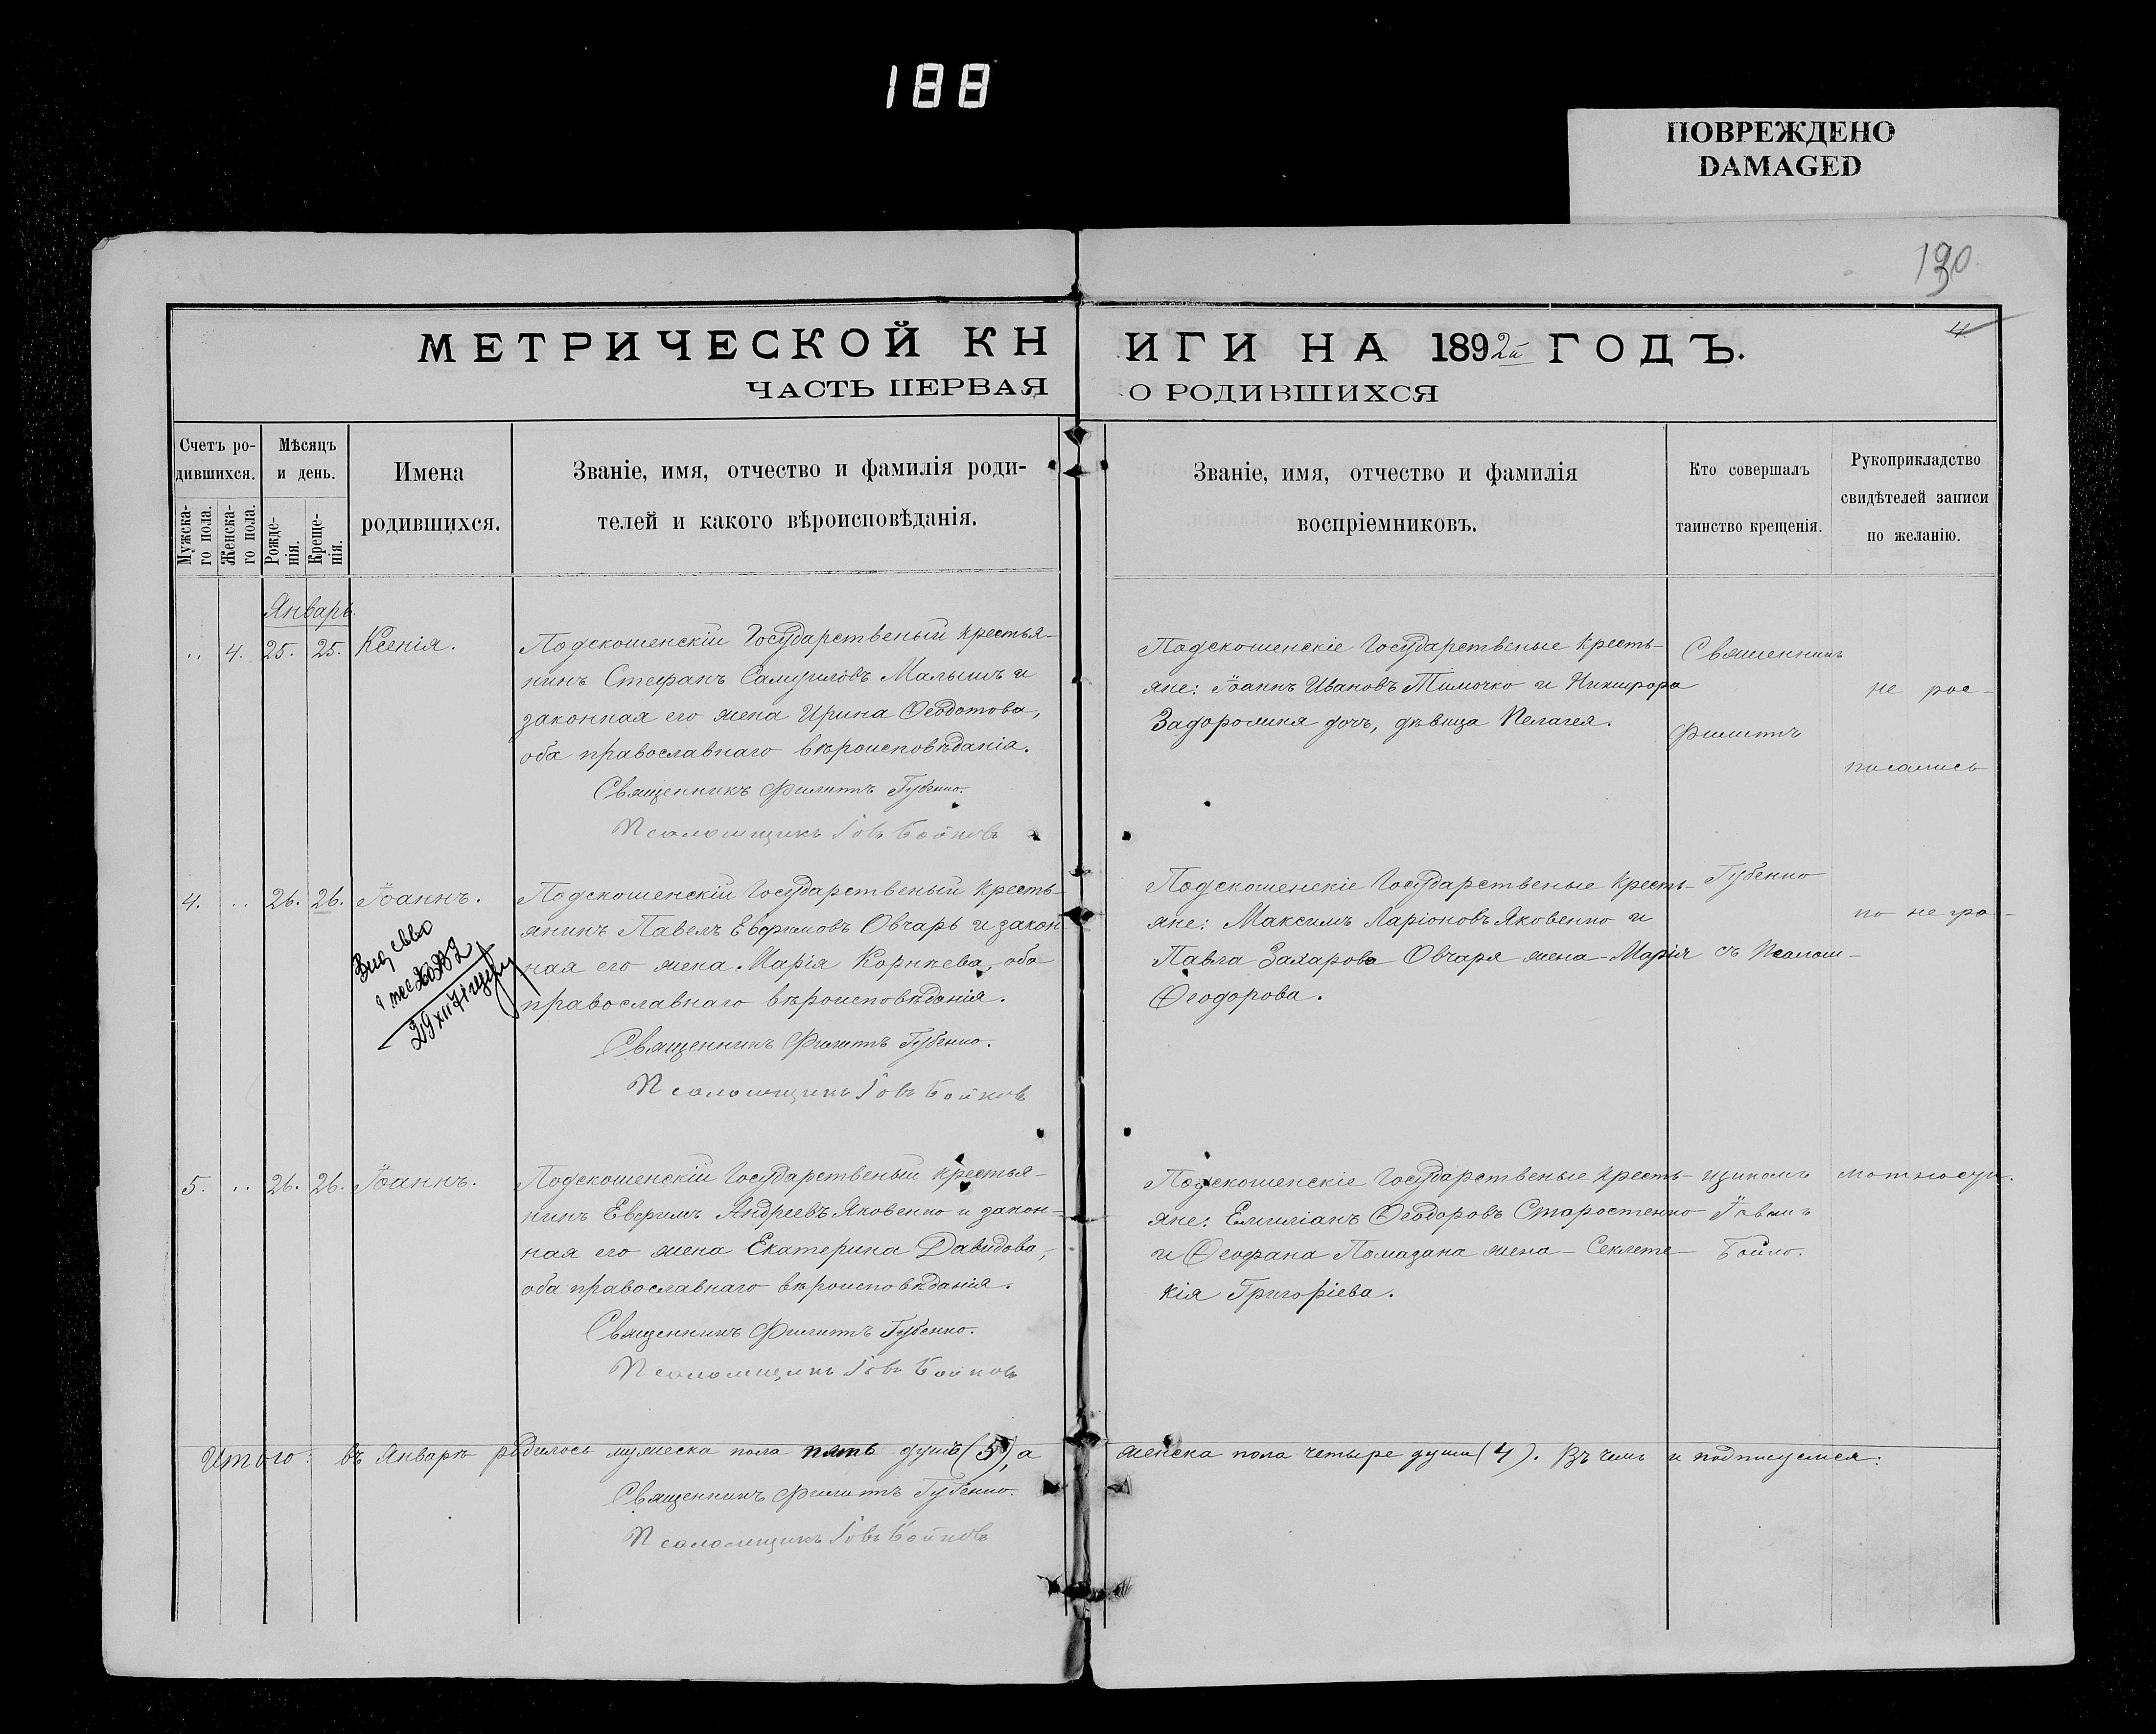 188
ПОВРЕЖДЕНО
DAMAGED
190
4
МЕТРИЧЕСКОЙ КНИГИ НА 1892й ГОДЪ.
ЧАСТЬ ПЕРВАЯ О РОДИВШИХСЯ
Счетъ ро-
дившихся.
Мужска-
го пола.
Женска-
го пола.
Мѣсяцъ
и день.
Рожде-
нія.
Креще-
нія.
Имена
родившихся.
Званіе, имя, отчество и фамилія роди-
телей и какого вѣроисповѣданія.
Званіе, имя, отчество и фамилія
воспріемниковъ.
Кто совершалъ
таинство крещенія.
Рукоприкладство
свидѣтелей записи
по желанію.
Январь.
.. 4. 25. 25. Ксенія.
Подскошенскій Государственый крестья-
нинъ Стефанъ Самуиловъ Малышъ и
законная его жена Ирина Ѳеодотова,
оба православнаго вѣроисповѣданія.
Священникъ Филиппъ Губенко.
Псаломщикъ Іовъ Бойковъ
Подскошенскіе Государственые кресть-
яне: Іоаннъ Ивановъ Тимочко и Никифора
Задорожня дочь, дѣвица Пелагея.
Священникъ
Филиппъ
не рос-
писались
4. .. 26. 26. Іоаннъ.
29 XII 71
Подскошенскій Государственый кресть-
янинъ Павелъ Евфимовъ Овчарь и закон
ная его жена Марія Корнѣева, оба
православнаго вѣроисповѣданія.
Священникъ Филиппъ Губенко.
Псаломщикъ Іовъ Бойковъ
Подскошенскіе Государственые кресть-
яне: Максимъ Ларіоновъ Яковенко и
Павла Захарова Овчаря жена - Марія
Ѳеодорова.
Губенко
съ Псалом-
по не гра-
5. .. 26. 26. Іоаннъ.
Подскошенскій Государственый крестья-
нинъ Евфимъ Андреевъ Яковенко и закон-
ная его жена Екатерина Давидова,
оба православнаго вѣроисповѣданія.
Священникъ Филиппъ Губенко.
Псаломщикъ Іовъ Бойковъ
Подскошенскіе Государственые кресть-
яне: Емиліанъ Ѳеодоровъ Старостенко
и Ѳеофана Помазана жена - Секлете-
кія Григоріева.
щикомъ
Іовомъ
Бойко.
мотности.
Итого: въ Январѣ родилось мужеска пола пять душъ (5), а женска пола четыре души (4). Въ чемъ и подписуемся:
Священникъ Филиппъ Губенко.
Псаломщикъ Іовъ Бойковъ